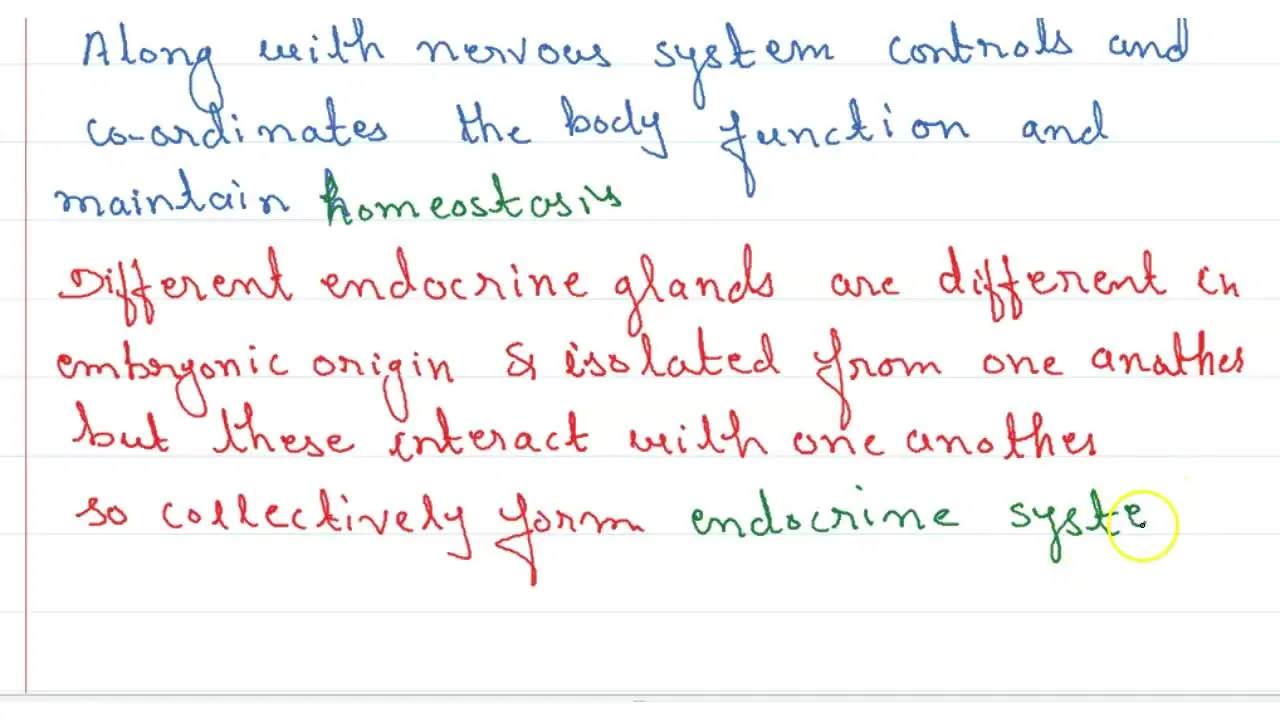 Along with nervous system controls and
co-ordinates the body function and
maintain homeostasis
Different endocrine glands are different in
embryonic origin & isolated from one another
but these interact with one another
so collectively form endocrine syste